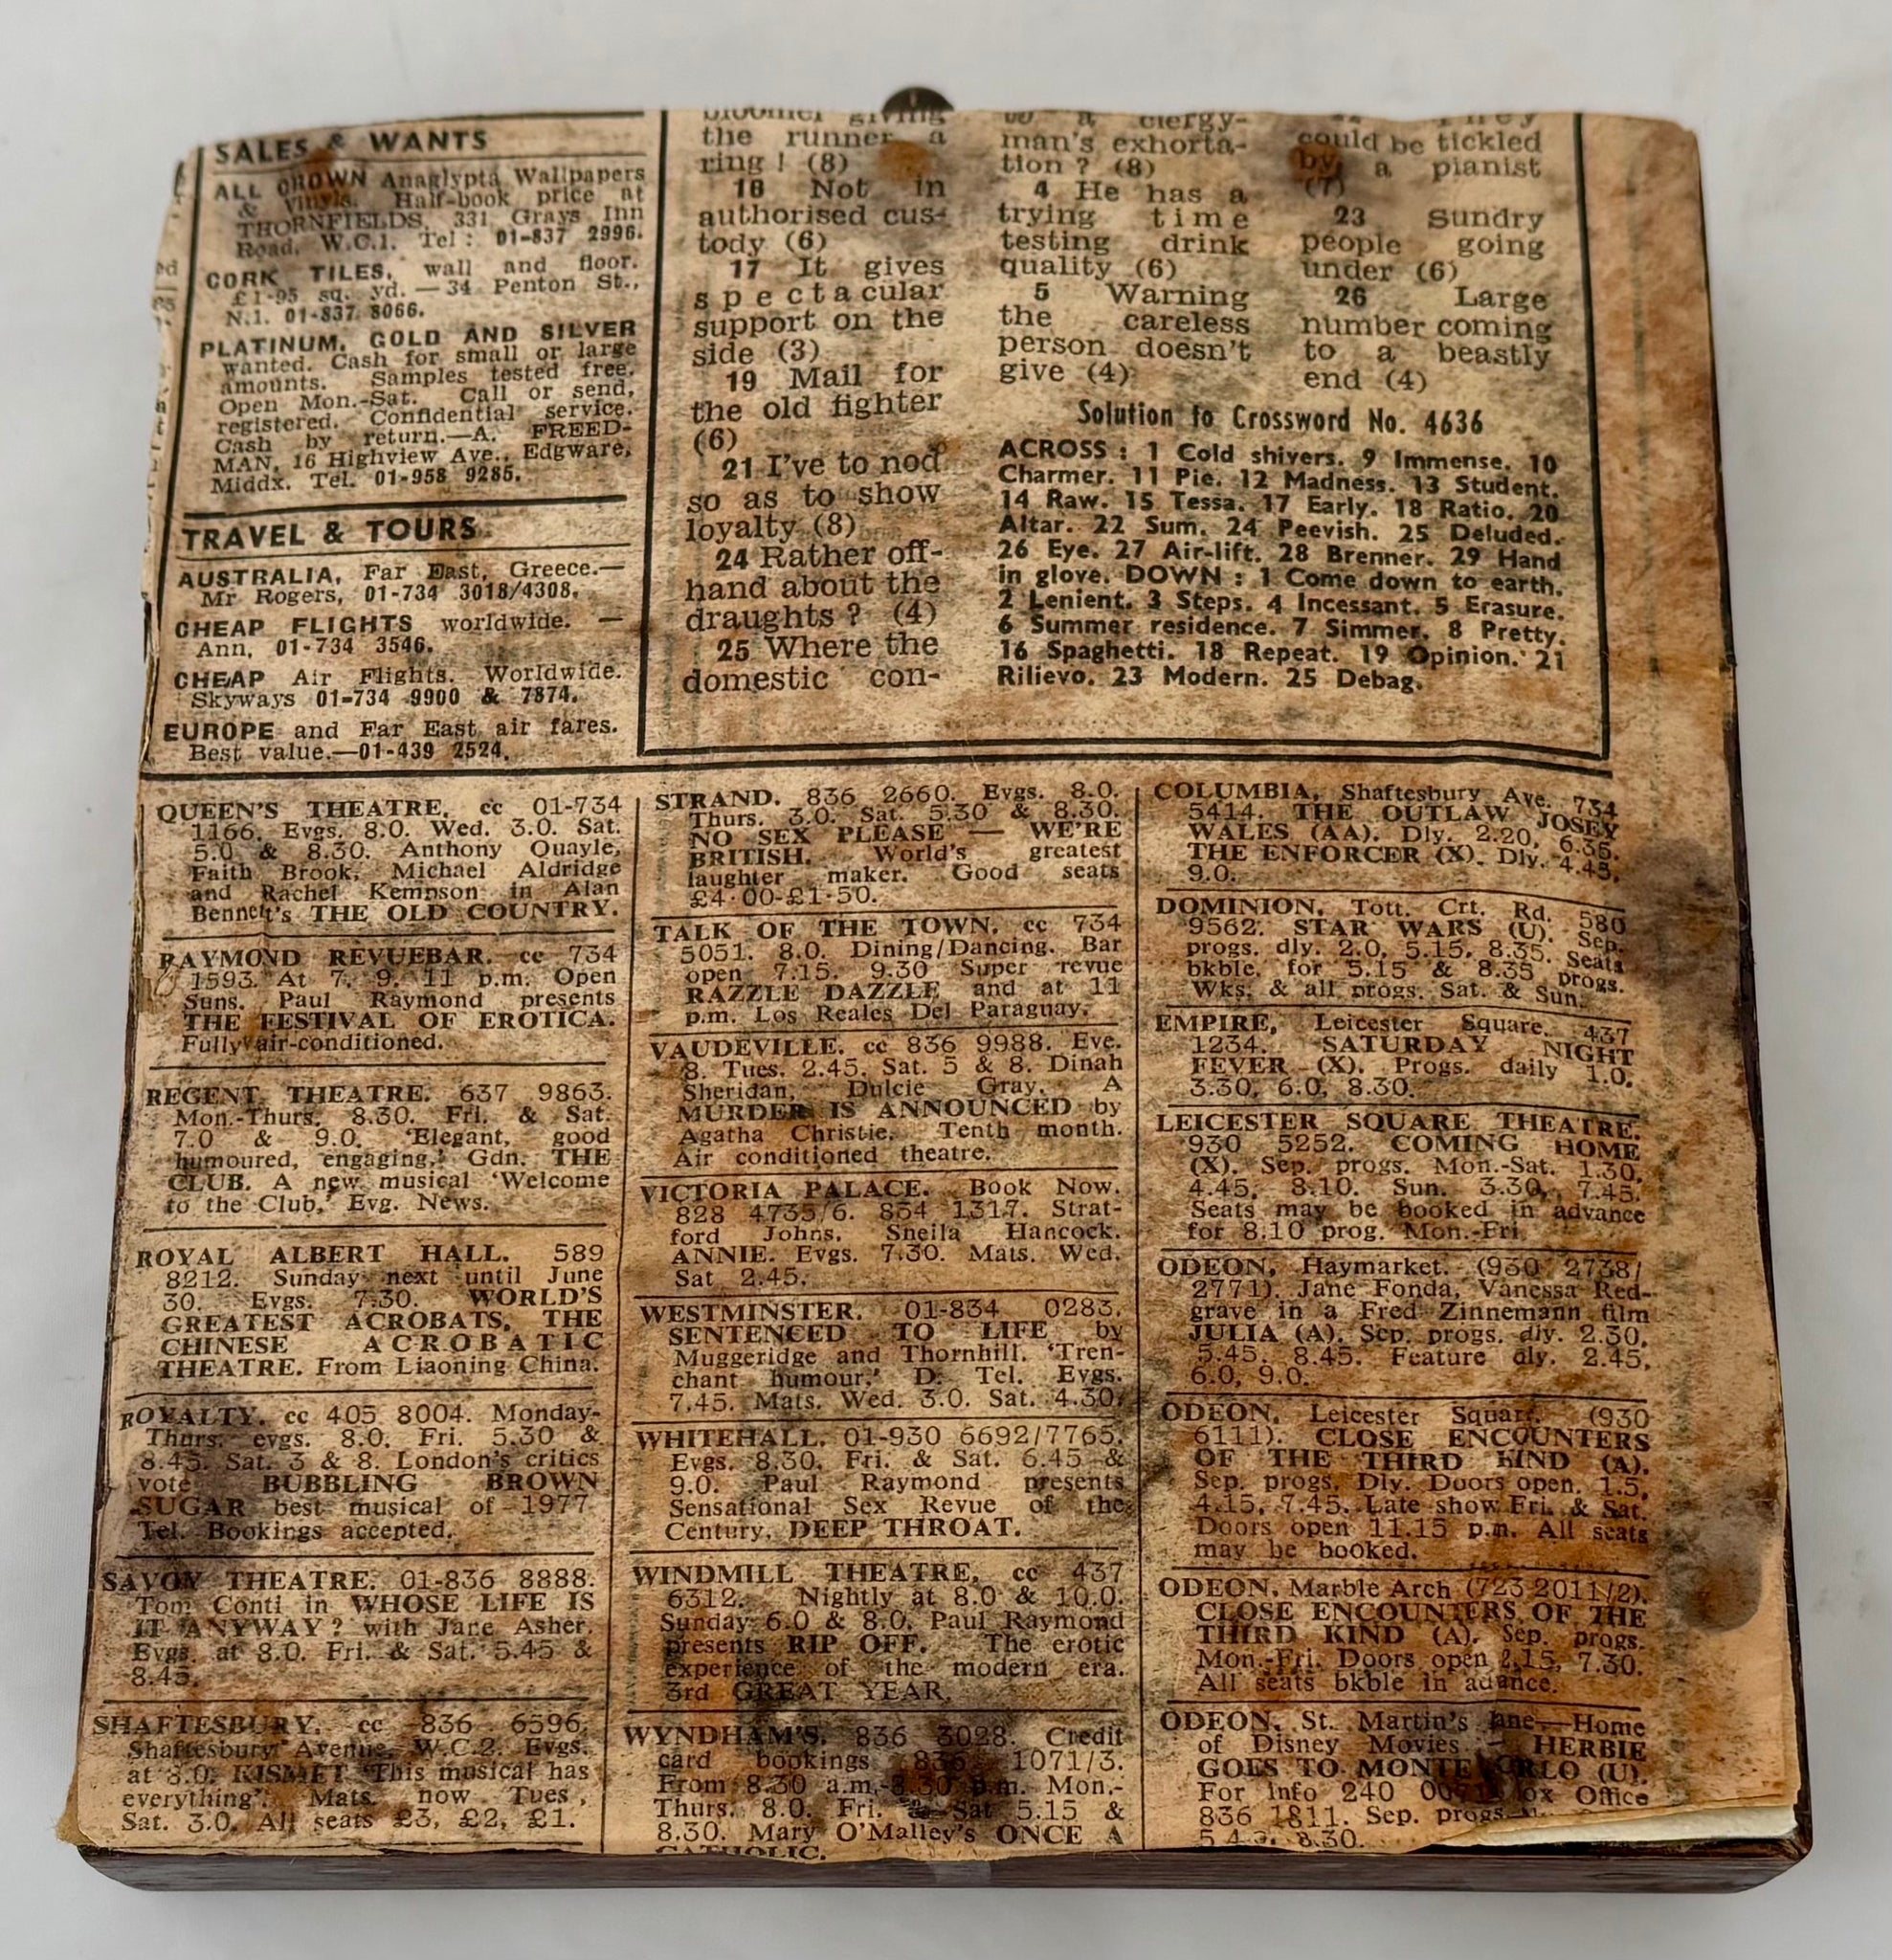 SALES & WANTS
ALL CROWN Anaglypta Wallpapers
& Vinyls. Half-book price at
THORNFIELDS, 331, Grays Inn
Road, W.C.1. Tel: 01-837 2996.
CORK TILES, wall and floor.
£1·95 sq. yd. — 34 Penton St.,
N.1. 01-837 8066.
PLATINUM, GOLD AND SILVER
wanted. Cash for small or large
amounts. Samples tested free.
Open Mon.-Sat. Call or send,
registered. Confidential service.
Cash by return.—A. FREED-
MAN, 16 Highview Ave., Edgware,
Middx. Tel. 01-958 9285.
TRAVEL & TOURS
AUSTRALIA, Far East, Greece.—
Mr Rogers, 01-734 3018/4308.
CHEAP FLIGHTS worldwide. —
Ann, 01-734 3546.
CHEAP Air Flights. Worldwide.
Skyways 01-734 9900 & 7874.
EUROPE and Far East air fares.
Best value.—01-439 2524.
bloomer giving
the runner a
ring ! (8)
16 Not in
authorised cus-
tody (6)
17 It gives
spectacular
support on the
side (3)
19 Mail for
the old fighter
(6)
21 I've to nod
so as to show
loyalty (8)
24 Rather off-
hand about the
draughts ? (4)
25 Where the
domestic con-
a clergy-
man's exhorta-
tion ? (8)
4 He has a
trying time
testing drink
quality (6)
5 Warning
the careless
person doesn't
give (4)
They
could be tickled
by a pianist
(7)
23 Sundry
people going
under (6)
26 Large
number coming
to a beastly
end (4)
Solution to Crossword No. 4636
ACROSS : 1 Cold shivers. 9 Immense. 10
Charmer. 11 Pie. 12 Madness. 13 Student.
14 Raw. 15 Tessa. 17 Early. 18 Ratio. 20
Altar. 22 Sum. 24 Peevish. 25 Deluded.
26 Eye. 27 Air-lift. 28 Brenner. 29 Hand
in glove. DOWN : 1 Come down to earth.
2 Lenient. 3 Steps. 4 Incessant. 5 Erasure.
6 Summer residence. 7 Simmer. 8 Pretty.
16 Spaghetti. 18 Repeat. 19 Opinion. 21
Rilievo. 23 Modern. 25 Debag.
QUEEN'S THEATRE. cc 01-734
1166. Evgs. 8.0. Wed. 3.0. Sat.
5.0 & 8.30. Anthony Quayle,
Faith Brook, Michael Aldridge
and Rachel Kempson in Alan
Bennett's THE OLD COUNTRY.
RAYMOND REVUEBAR. cc 734
1593. At 7. 9. 11 p.m. Open
Suns. Paul Raymond presents
THE FESTIVAL OF EROTICA.
Fully air-conditioned.
REGENT THEATRE. 637 9863.
Mon.-Thurs. 8.30. Fri. & Sat.
7.0 & 9.0. 'Elegant, good
humoured, engaging,' Gdn. THE
CLUB. A new musical 'Welcome
to the Club,' Evg. News.
ROYAL ALBERT HALL. 589
8212. Sunday next until June
30. Evgs. 7.30. WORLD'S
GREATEST ACROBATS, THE
CHINESE ACROBATIC
THEATRE. From Liaoning China.
ROYALTY. cc 405 8004. Monday-
Thurs. evgs. 8.0. Fri. 5.30 &
8.45. Sat. 3 & 8. London's critics
vote BUBBLING BROWN
SUGAR best musical of 1977
Tel. Bookings accepted.
SAVOY THEATRE. 01-836 8888.
Tom Conti in WHOSE LIFE IS
IT ANYWAY? with Jane Asher.
Evgs. at 8.0. Fri. & Sat. 5.45 &
8.45.
SHAFTESBURY. cc 836 6596.
Shaftesbury Avenue, W.C.2. Evgs.
at 8.0. KISMET 'This musical has
everything'. Mats. now Tues,
Sat. 3.0. All seats £3, £2, £1.
STRAND. 836 2660. Evgs. 8.0.
Thurs. 3.0. Sat. 5.30 & 8.30.
NO SEX PLEASE — WE'RE
BRITISH. World's greatest
laughter maker. Good seats
£4·00-£1·50.
TALK OF THE TOWN. cc 734
5051. 8.0. Dining/Dancing. Bar
open 7.15. 9.30 Super revue
RAZZLE DAZZLE and at 11
p.m. Los Reales Del Paraguay.
VAUDEVILLE. cc 836 9988. Eve.
8. Tues. 2.45. Sat. 5 & 8. Dinah
Sheridan, Dulcie Gray. A
MURDER IS ANNOUNCED by
Agatha Christie. Tenth month.
Air conditioned theatre.
VICTORIA PALACE. Book Now.
828 4735/6. 834 1317. Strat-
ford Johns. Sheila Hancock.
ANNIE. Evgs. 7.30. Mats. Wed.
Sat 2.45.
WESTMINSTER. 01-834 0283.
SENTENCED TO LIFE by
Muggeridge and Thornhill. 'Tren-
chant humour,' D. Tel. Evgs.
7.45. Mats. Wed. 3.0. Sat. 4.30.
WHITEHALL. 01-930 6692/7765.
Evgs. 8.30. Fri. & Sat. 6.45 &
9.0. Paul Raymond presents
Sensational Sex Revue of the
Century. DEEP THROAT.
WINDMILL THEATRE. cc 437
6312. Nightly at 8.0 & 10.0.
Sunday 6.0 & 8.0. Paul Raymond
presents RIP OFF. The erotic
experience of the modern era.
3rd GREAT YEAR.
WYNDHAM'S. 836 3028. Credit
card bookings 836 1071/3.
From 8.30 a.m.-8.30 p.m. Mon.-
Thurs. 8.0. Fri. & Sat 5.15 &
8.30. Mary O'Malley's ONCE A
CATHOLIC.
COLUMBIA, Shaftesbury Ave. 734
5414. THE OUTLAW JOSEY
WALES (AA). Dly. 2.20, 6.35.
THE ENFORCER (X). Dly. 4.45,
9.0.
DOMINION, Tott. Crt. Rd. 580
9562. STAR WARS (U). Sep.
progs. dly. 2.0, 5.15, 8.35. Seats
bkble. for 5.15 & 8.35 progs.
Wks. & all progs. Sat. & Sun.
EMPIRE, Leicester Square. 437
1234. SATURDAY NIGHT
FEVER (X). Progs. daily 1.0,
3.30, 6.0, 8.30.
LEICESTER SQUARE THEATRE.
930 5252. COMING HOME
(X). Sep. progs. Mon.-Sat. 1.30,
4.45, 8.10. Sun. 3.30, 7.45.
Seats may be booked in advance
for 8.10 prog. Mon.-Fri.
ODEON, Haymarket. (930 2738/
2771). Jane Fonda, Vanessa Red-
grave in a Fred Zinnemann film
JULIA (A). Sep. progs. dly. 2.30,
5.45, 8.45. Feature dly. 2.45,
6.0, 9.0.
ODEON, Leicester Square. (930
6111). CLOSE ENCOUNTERS
OF THE THIRD KIND (A).
Sep. progs. Dly. Doors open. 1.5,
4.15, 7.45. Late show Fri. & Sat.
Doors open 11.15 p.m. All seats
may be booked.
ODEON, Marble Arch (723 2011/2).
CLOSE ENCOUNTERS OF THE
THIRD KIND (A). Sep. progs.
Mon.-Fri. Doors open 2.15, 7.30.
All seats bkble in advance.
ODEON, St. Martin's Lane—Home
of Disney Movies — HERBIE
GOES TO MONTE CARLO (U).
For info 240 0071. Box Office
836 1811. Sep. progs.
8.30.